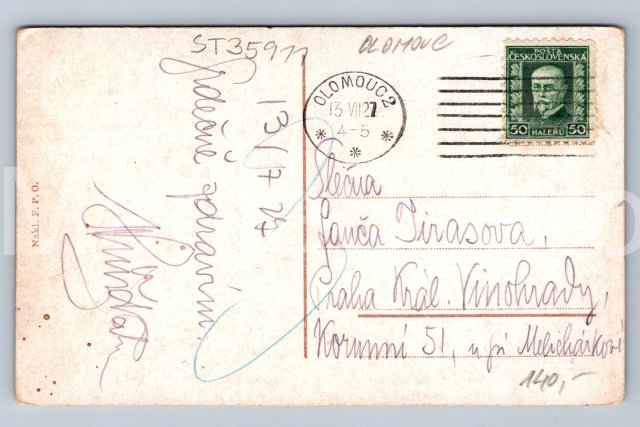 ST35911
OLOMOUC
OLOMOUC 2
13 VII 27
4-5
POŠTA
ČESKOSLOVENSKÁ
50 HALÉŘŮ 50
13/7 27
Srdečně zdravím
Slečna
Fanča Jirasova,
Praha Král. Vinohrady,
Korunní 51, u pí Melichárkové
140,-
Nakl. F. P. O.